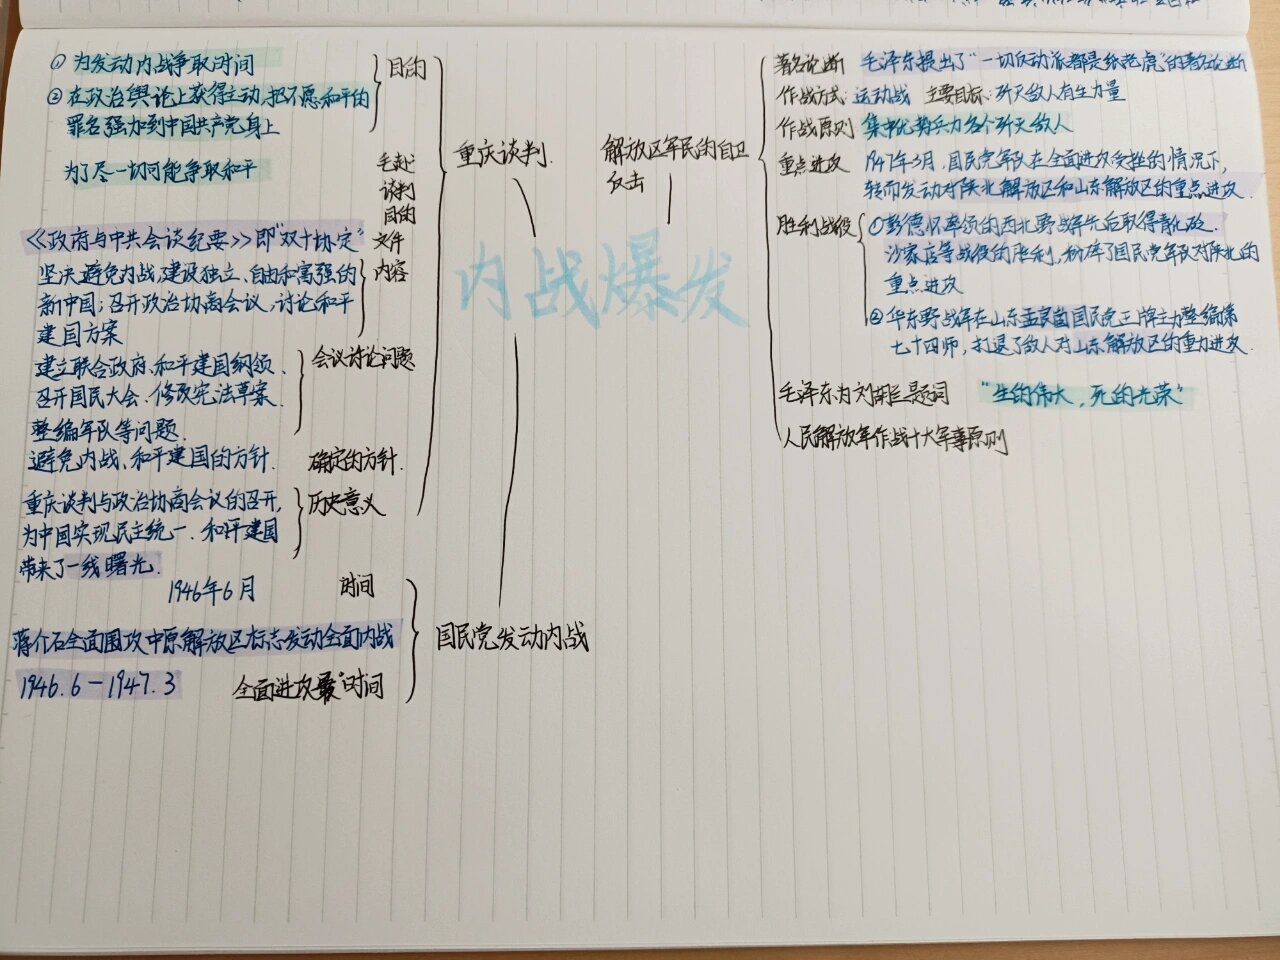 内战爆发
重庆谈判.
目的
① 为发动内战争取时间
② 在政治舆论上获得主动,把不愿和平的
罪名强加到中国共产党身上
毛赴
谈判
目的
为了尽一切可能争取和平
文件
《政府与中共会谈纪要》即"双十协定"
内容
坚决避免内战,建设独立、自由和富强的
新中国;召开政治协商会议,讨论和平
建国方案
会议讨论问题
建立联合政府、和平建国纲领、
召开国民大会、修改宪法草案、
整编军队等问题.
确定的方针.
避免内战、和平建国的方针.
历史意义
重庆谈判与政治协商会议的召开,
为中国实现民主统一、和平建国
带来了一线曙光.
国民党发动内战
时间
1946年6月
蒋介石全面围攻中原解放区标志发动全面内战
全面进攻 时间
1946.6-1947.3
解放区军民的自卫
反击
著名论断 毛泽东提出了"一切反动派都是纸老虎"的著名论断
作战方式: 运动战 主要目标: 歼灭敌人有生力量
作战原则 集中优势兵力各个歼灭敌人
重点进攻 1947年3月,国民党军队在全面进攻受挫的情况下,
转而发动对陕北解放区和山东解放区的重点进攻.
胜利战役 ①彭德怀率领的西北野战军先后取得青化砭.
沙家店等战役的胜利,粉碎了国民党军队对陕北的
重点进攻
② 华东野战军在山东孟良崮国民党王牌主力整编第
七十四师,打退了敌人对山东解放区的重力进攻.
毛泽东为刘胡兰题词 "生的伟大,死的光荣"
人民解放军作战十大军事原则